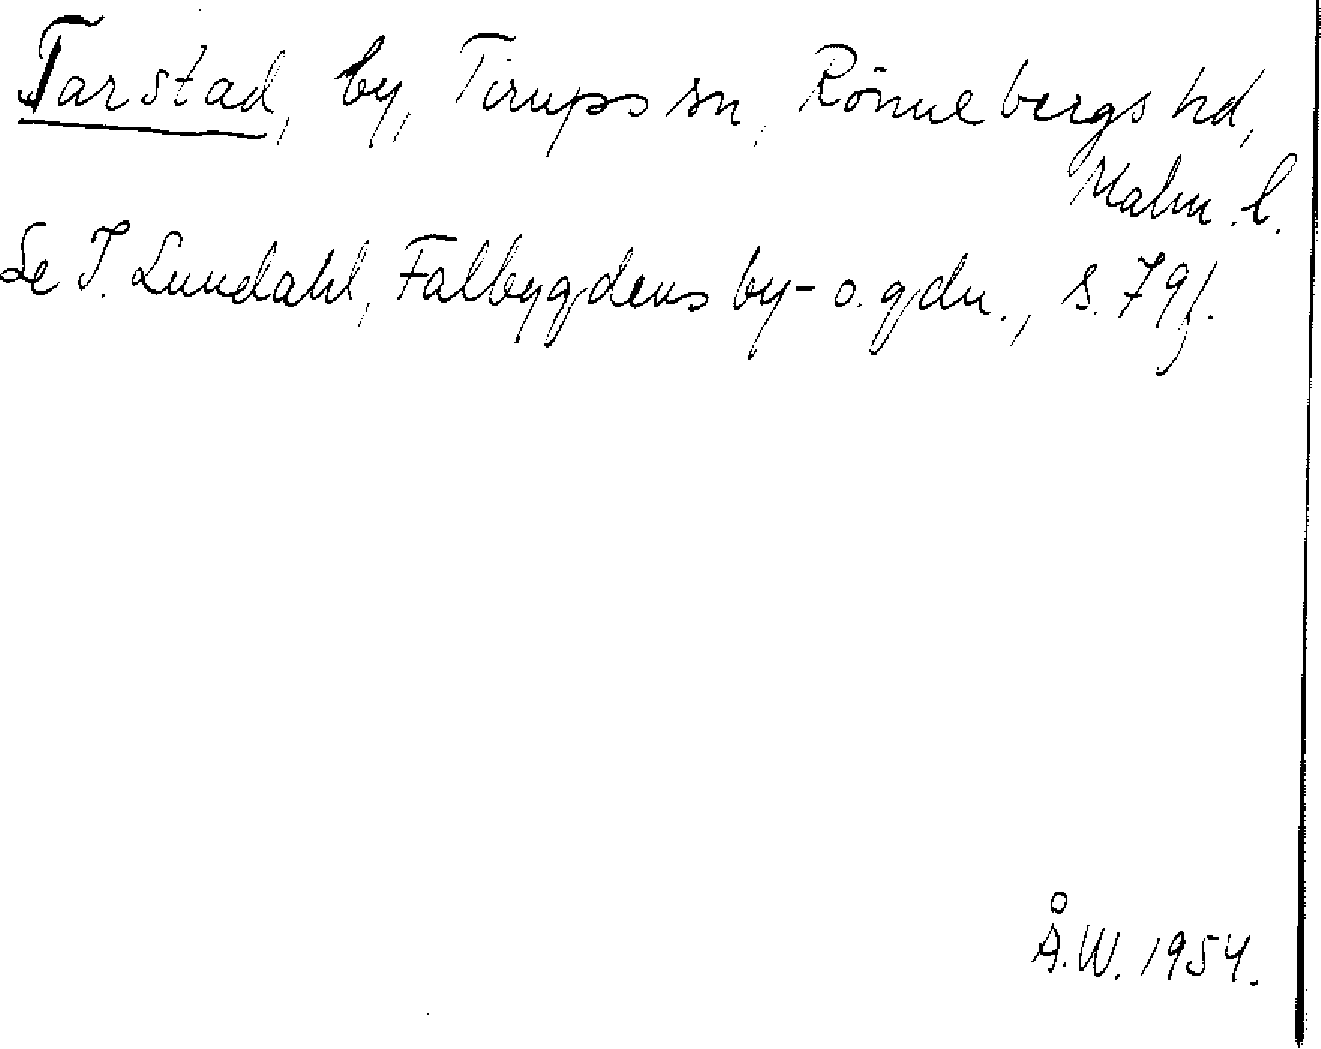 Tarstad, by, Tirups sn, Rönnebergs hd,
Malm. l.
Se I. Lundahl, Falbygdens by- o. gdn., s. 79f.
Å.W. 1954.